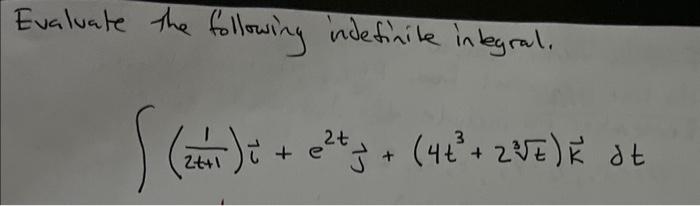 Evaluate the following indefinite integral.
∫ (1/(2t+1)) i⃗ + e^{2t} j⃗ + (4t³ + 2∛t) k⃗ dt